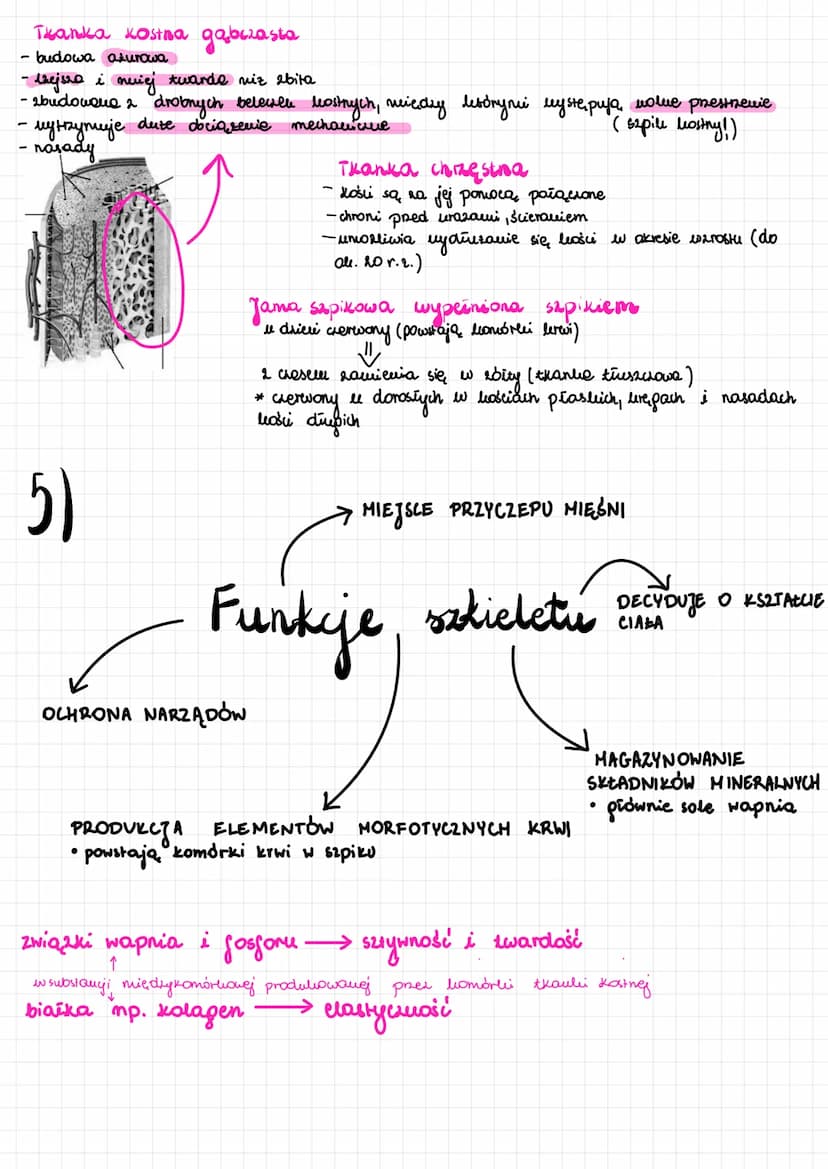 Tkanka kostna gąbczasta
- budowa ażurowa
- lżejsza i mniej twarda niż zbita
- zbudowana z drobnych beleczek kostnych, między którymi występują wolne przestrzenie
- wytrzymuje duże obciążenie mechaniczne (szpik kostny!)
- nasady
Tkanka chrzęstna
- kości są za jej pomocą połączone
- chroni przed urazami, ścieraniem
- umożliwia wydłużanie się kości w okresie wzrostu (do
ok. 20 r.ż.)
Jama szpikowa wypełniona szpikiem
u dzieci czerwony (powstają komórki krwi)
z czasem zamienia się w żółty (tkanka tłuszczowa)
* czerwony u dorosłych w kościach płaskich, kręgach i nasadach
kości długich
5)
MIEJSCE PRZYCZEPU MIĘŚNI
Funkcje szkieletu
DECYDUJE O KSZTAŁCIE
CIAŁA
OCHRONA NARZĄDÓW
MAGAZYNOWANIE
SKŁADNIKÓW MINERALNYCH
• głównie sole wapnia
PRODUKCJA ELEMENTÓW MORFOTYCZNYCH KRWI
• powstają komórki krwi w szpiku
związki wapnia i fosforu → sztywność i twardość
w substancji międzykomórkowej produkowanej przez komórki tkanki kostnej
białka np. kolagen → elastyczność